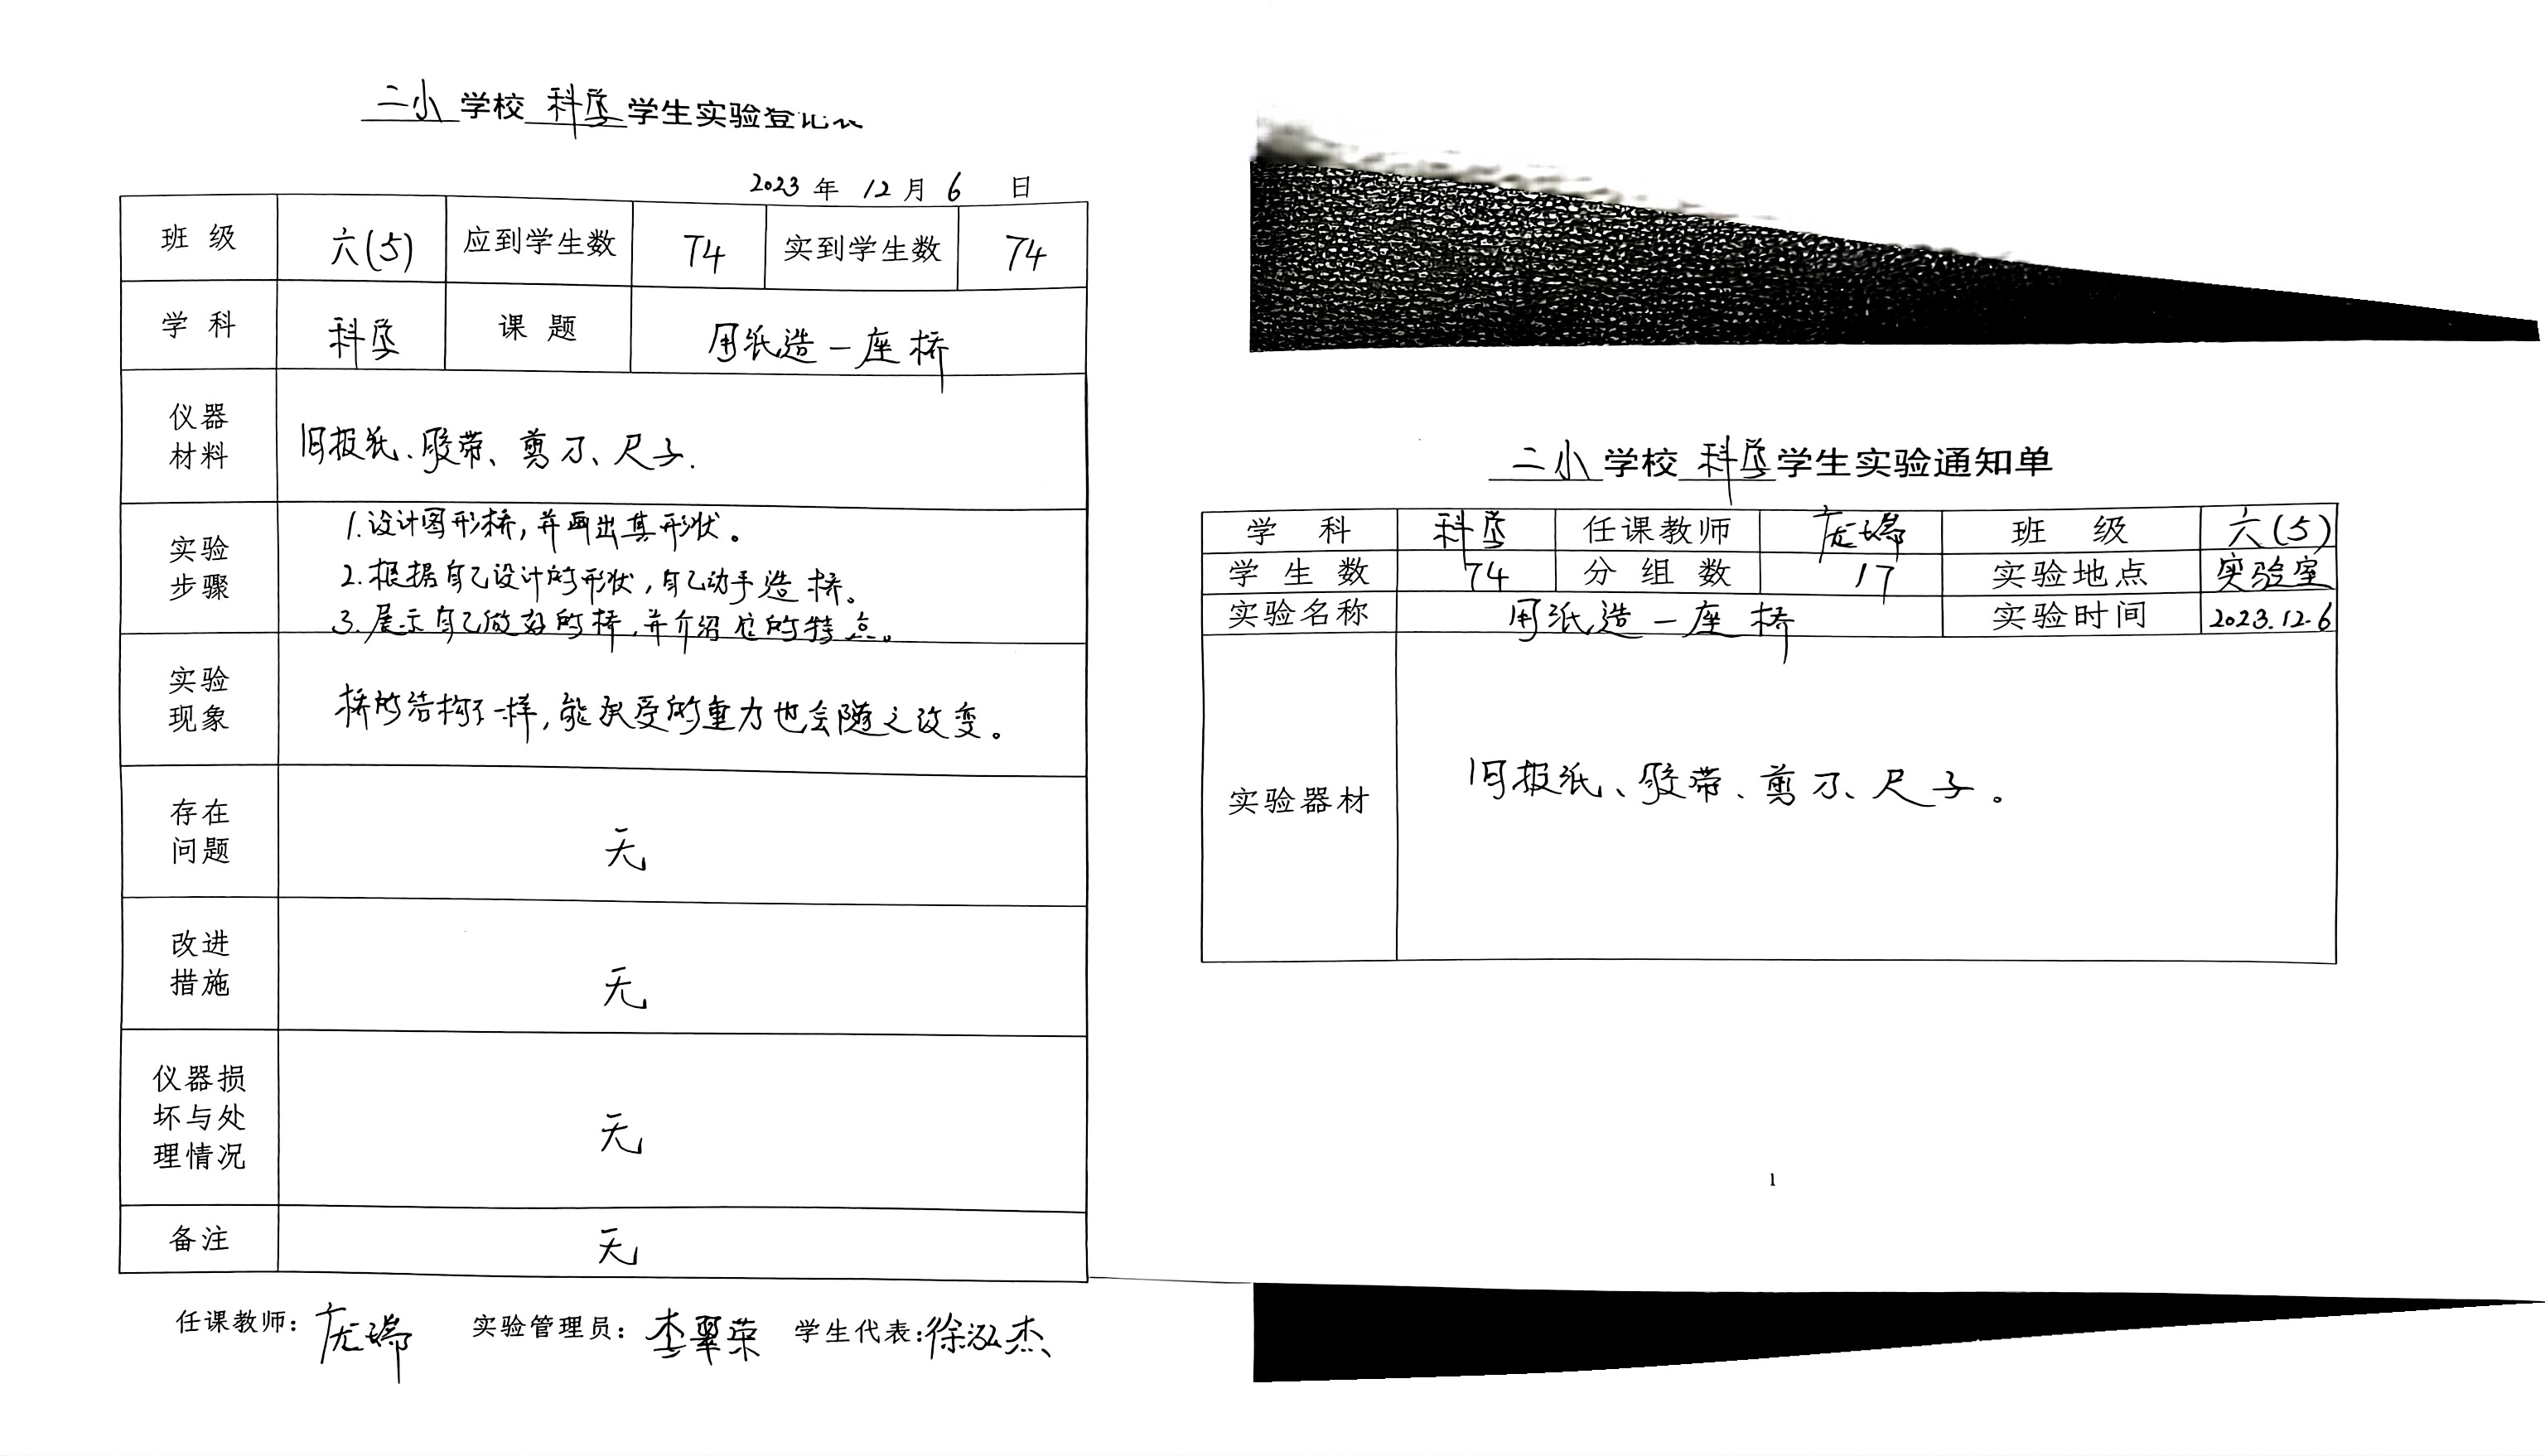 二小学校科学学生实验登记表
2023年12月6日
班级 六(5) 应到学生数 74 实到学生数 74
学科 科学 课题 用纸造一座桥
仪器材料 旧报纸、胶带、剪刀、尺子.
实验步骤
1.设计图形桥,并画出其形状。
2.根据自己设计的形状,自己动手造桥。
3.展示自己做好的桥,并介绍它的特点。
实验现象 桥的结构不一样,能承受的重力也会随之改变。
存在问题 无
改进措施 无
仪器损坏与处理情况 无
备注 无
任课教师: 庞瑞 实验管理员: 李翠荣 学生代表:徐泓杰
二小学校科学学生实验通知单
学科 科学 任课教师 庞瑞 班级 六(5)
学生数 74 分组数 17 实验地点 实验室
实验名称 用纸造一座桥 实验时间 2023.12.6
实验器材 旧报纸、胶带、剪刀、尺子。
1